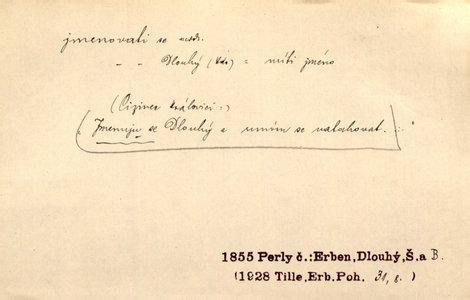 jmenovati se
- - Dlouhý (kdo) = míti jméno
(Cizinec královici:)
„Jmenuju se Dlouhý a umím se natahovat. ..."
1855 Perly č.:Erben,Dlouhý,Š.a B.
(1928 Tille,Erb.Poh. 31, 8. )